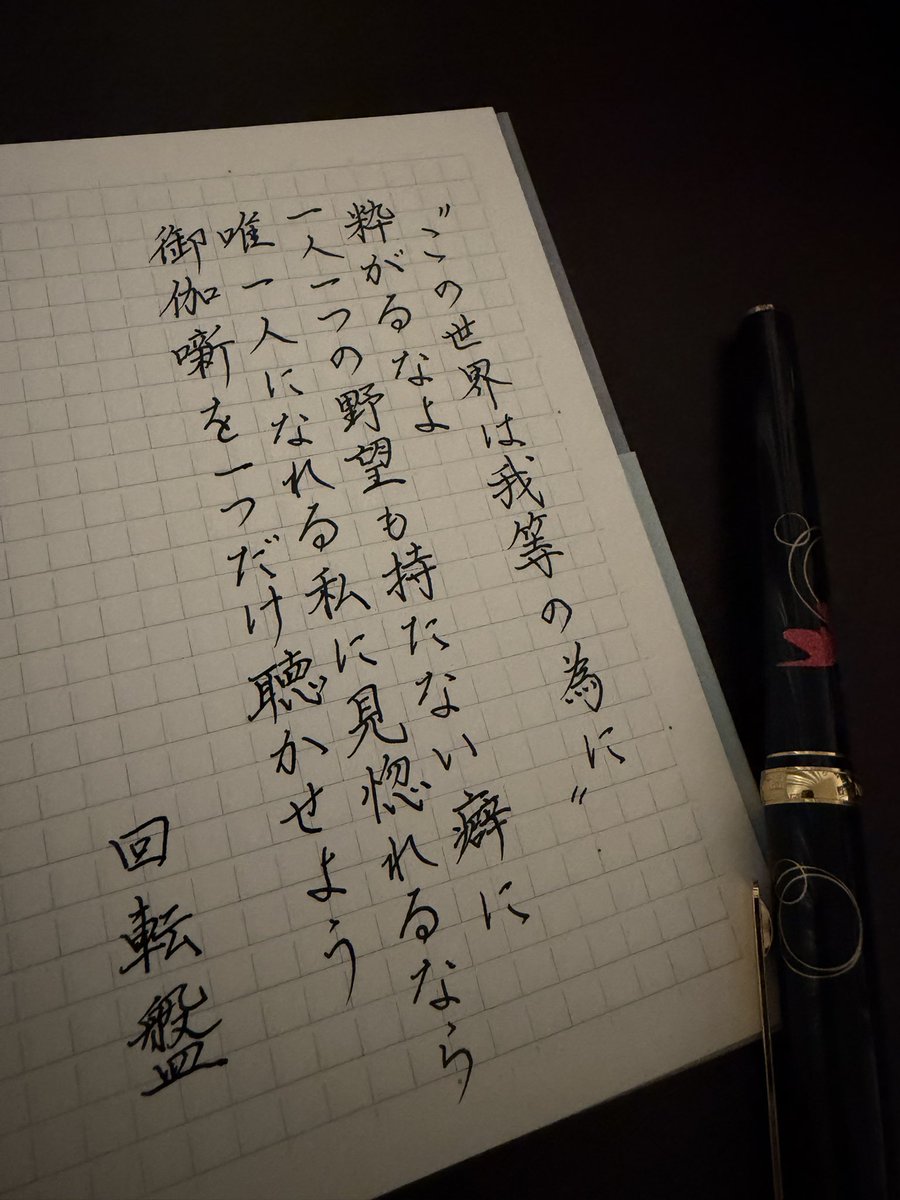 〝この世界は我等の為に〟
粋がるなよ
一人一つの野望も持たない癖に
唯一人になれる私に見惚れるなら
御伽噺を一つだけ聴かせよう
回転盤